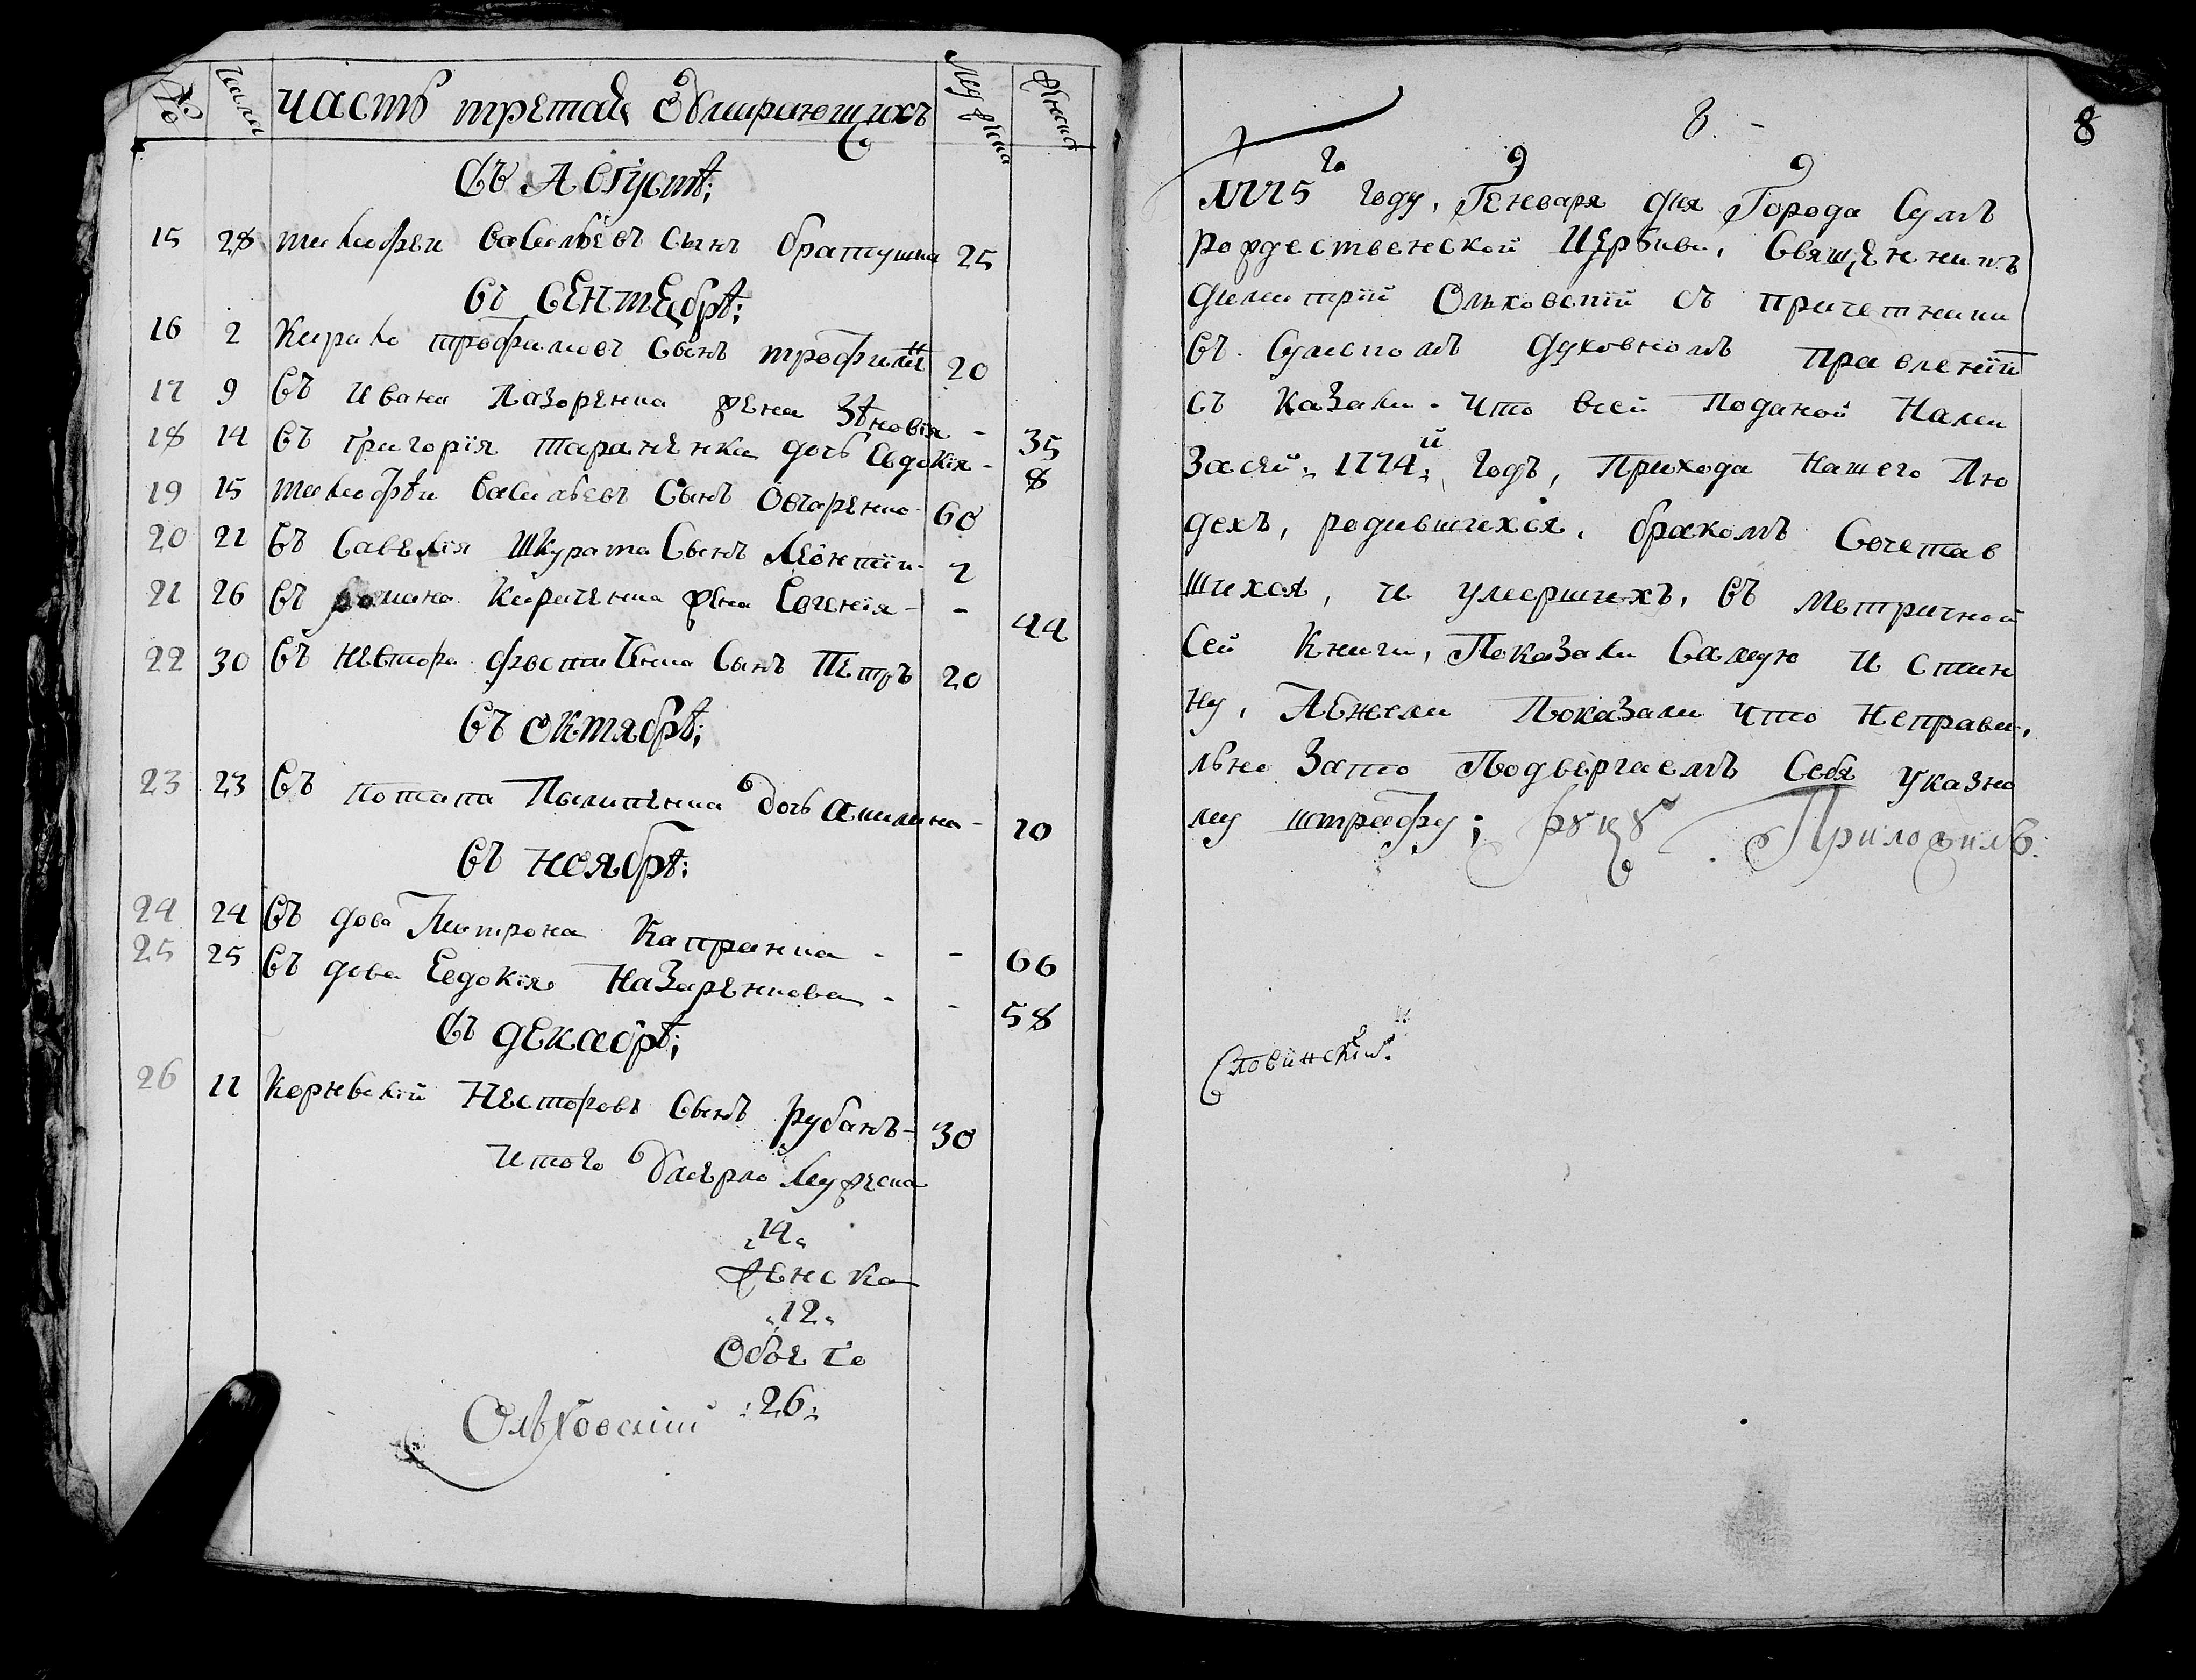 № числа часть третая обмирающихъ муженска женска
въ Августѣ:
15 28 тимофеи васильевъ сынъ братушка 25
въ сентебрѣ:
16 2 Кирило трофимовъ сынъ трофименъ 20
17 9 въ ивана Лазоренка жена Зѣновія - 35
18 14 въ григорія тараненка дочь Евдокія - 8
19 15 тимофѣи васильевъ сынъ Овчаренко 60
20 21 въ Савелія Шкурата сынъ Леонтіи - 2
21 26 въ романа Кириченка жена Евгенія - - 44
22 30 въ нестора сынъ Петръ 20
въ октябрѣ:
23 23 въ потапа Пилипенка дочь Акилина - 10
въ ноябрѣ:
24 24 въдова Матрона Капранка - - 66
25 25 въдова Евдокія Назаренкова - - 58
въ декабрѣ;
26 11 Корнѣлій Несторовъ сынъ рубанъ - 30
итого умерло мужеска
14
женска
12
Обоего
:26:
Ольховскій
8. - 8
1775го году, Генваря дня Города Сумъ
рождественской Церкви, Священникъ
Димитрій Ольховскій съ причетники
въ Сумскомъ духовномъ правленіи
съказали. что всей поданой нами
Засей: 1774:й годъ, прихода нашего Лю
дехъ, родившихся, бракомъ сочетав
шихся, и умершихъ, въ метричной
сей книги, показали самую истин
ну, Аежели показали что неправи,
льно зато подвергаемъ себя указно
му штрафу; руку Приложилъ.